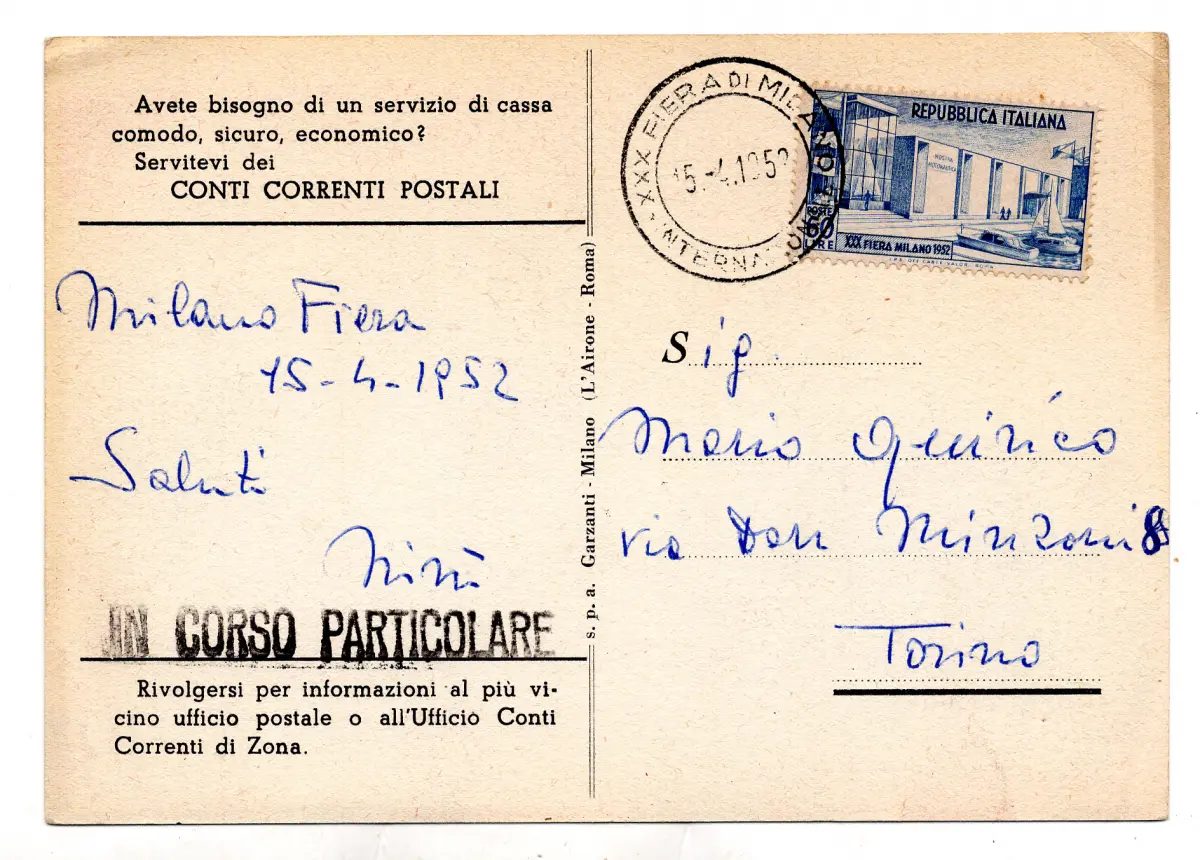 Avete bisogno di un servizio di cassa
comodo, sicuro, economico?
Servitevi dei
CONTI CORRENTI POSTALI
Milano Fiera
15-4-1952
Saluti
IN CORSO PARTICOLARE
Rivolgersi per informazioni al più vi-
cino ufficio postale o all'Ufficio Conti
Correnti di Zona.
s. p. a. Garzanti - Milano (L'Airone - Roma)
XXX FIERA DI MILANO
15.-4.1952
REPUBBLICA ITALIANA
MOSTRA
MOTONAUTICA
POSTE
LIRE
XXX FIERA MILANO 1952
Sig.
Mario Quirico
via Don Minzoni 8
Torino